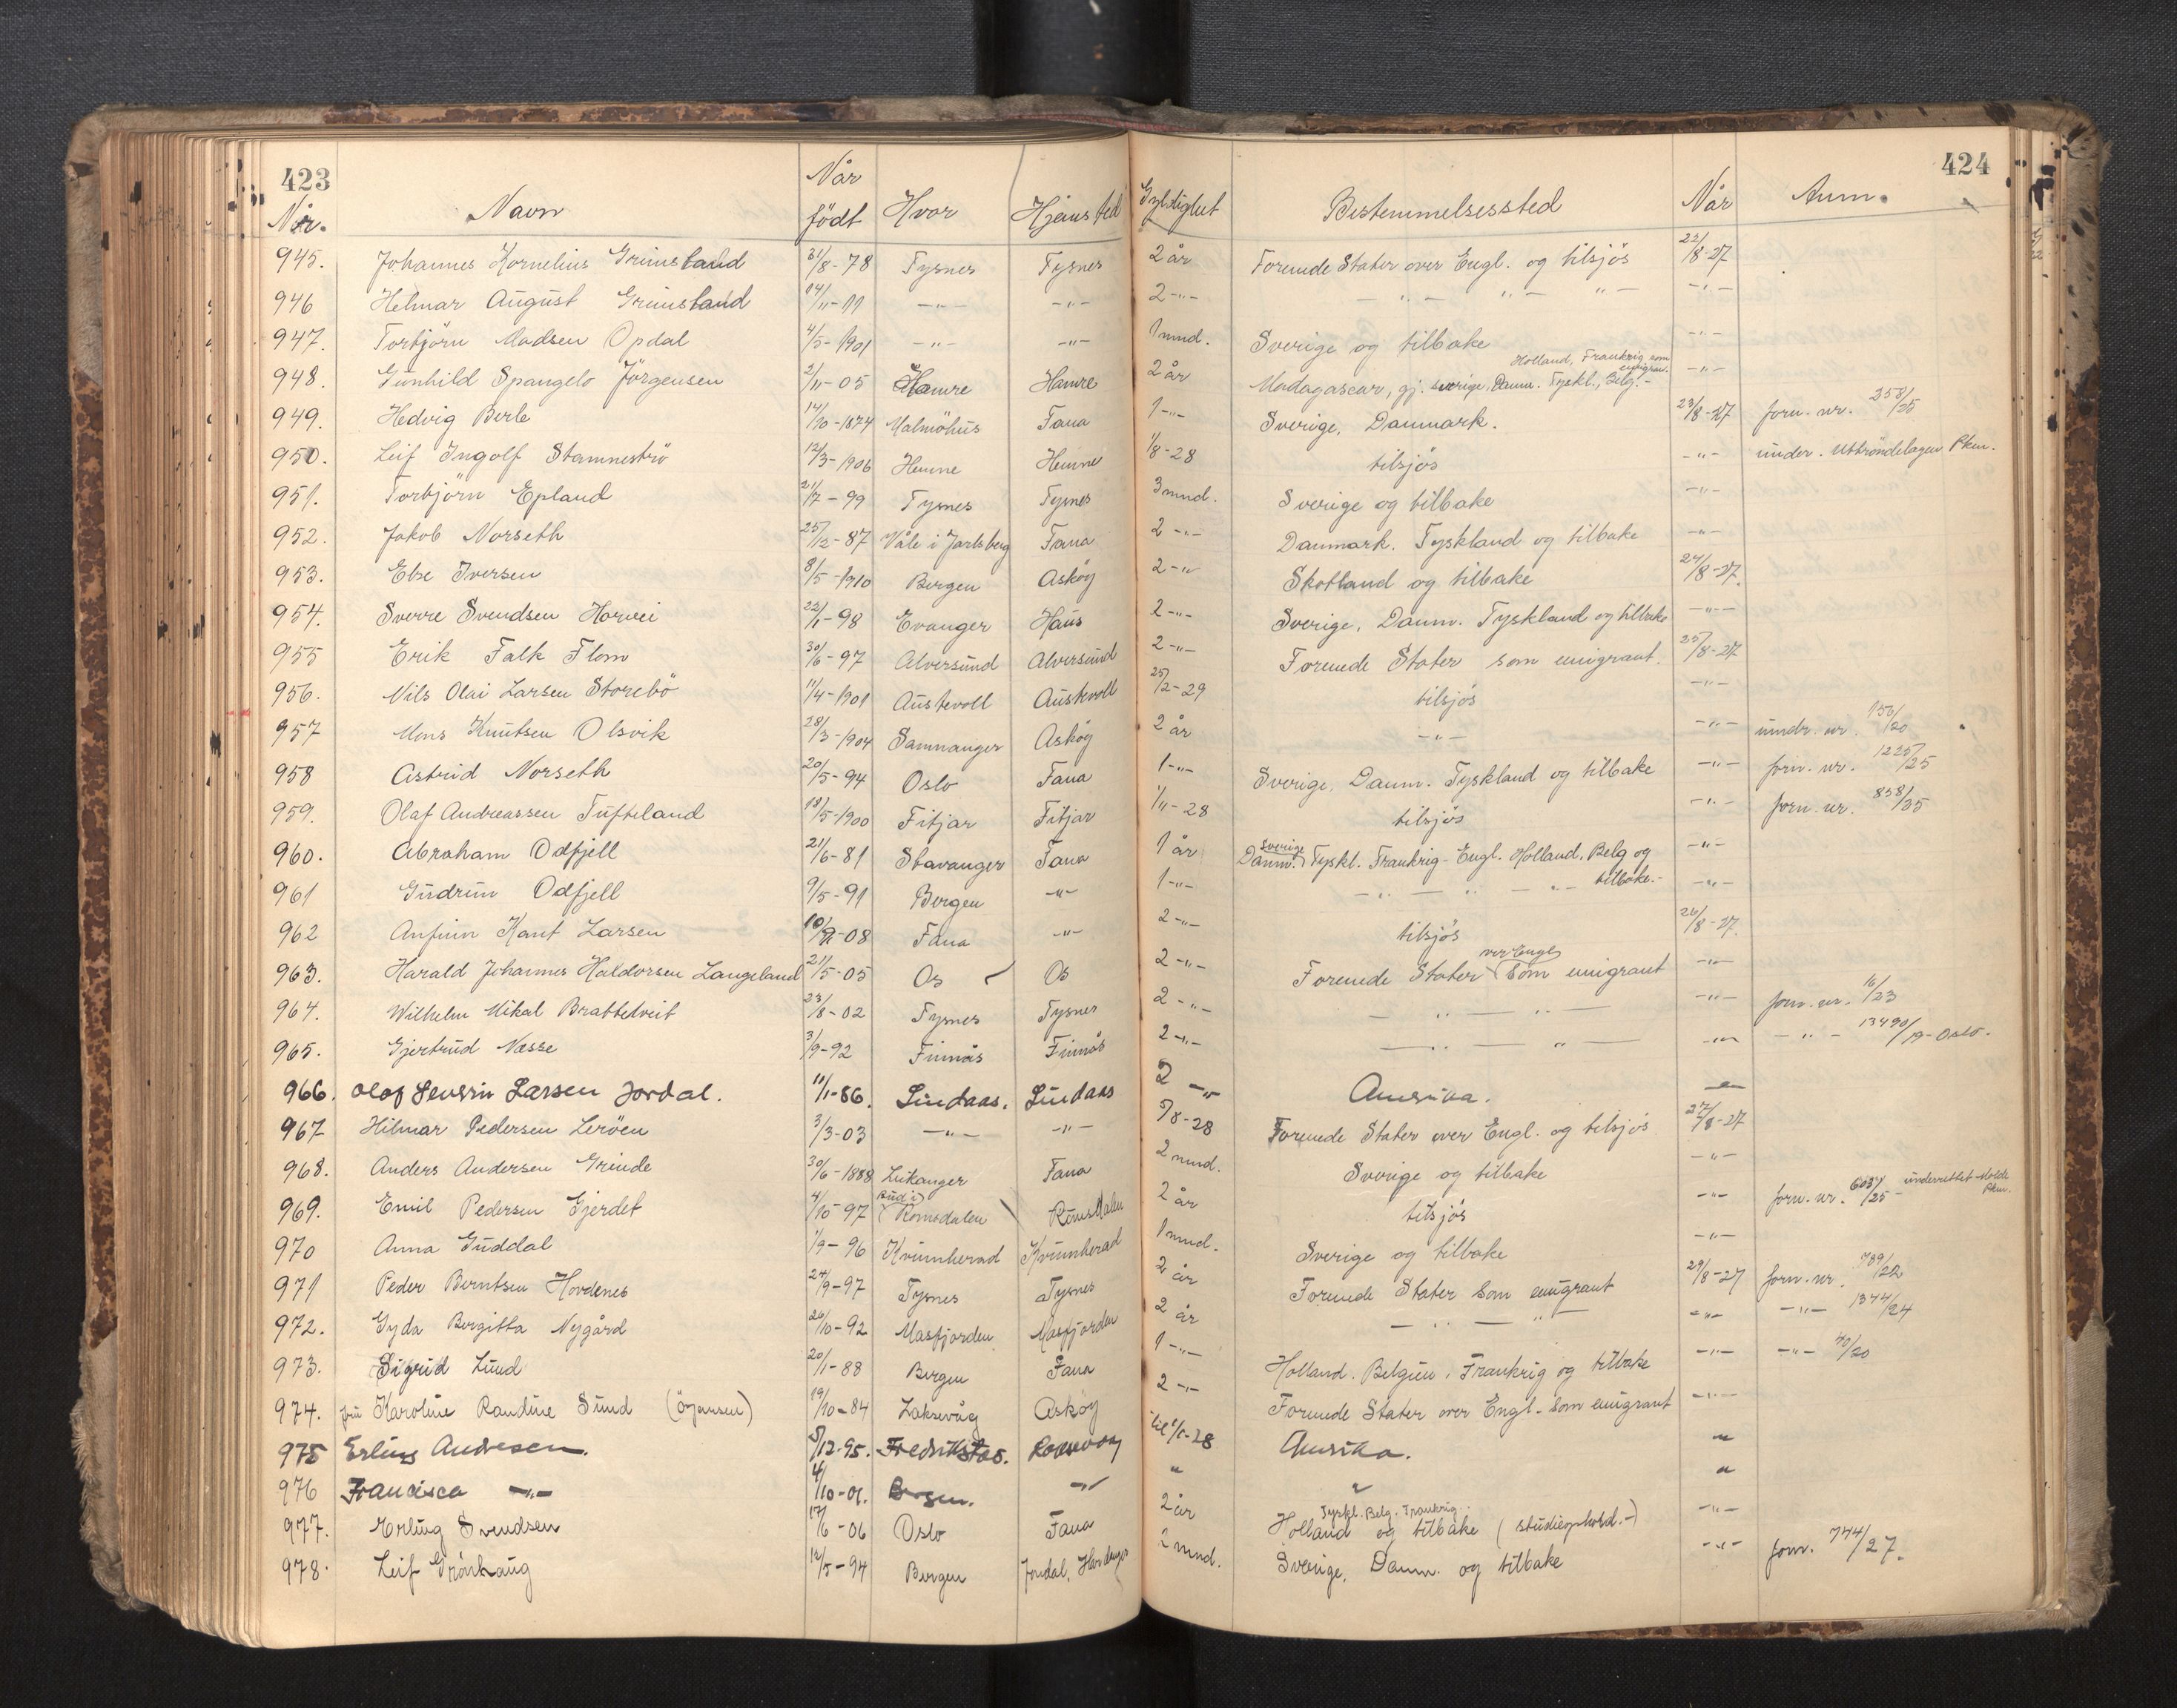 423 424
Nr. Navn Når født Hvor Hjemsted Gyldighet Bestemmelsessted Når Anm.
945. Johannes Kornelius Grimstand 31/8-78 Tysnes Tysnes 2 år Forenede Stater over Engl. og tilsjøs 22/8-27
946 Helmar August Grimstand 14/11-11 -"- -"- 2 -"- "- "- "- -"-
947. Torbjörn Madsen Opdal 4/5-1901 -"- -"- 1 mnd. Sverige og tilbake -"-
948. Gunhild Spangelo Jörgensen 2/11-05 Hamre Hamre 2 år Madagascar, gj. sverige, Danm. Tyskl., Belg.- Holland, Frankrig som emigran. -"-
949. Hedvig Berle 14/10-1874 Malmöhus Fana 1 -"- Sverige, Danmark. 23/8-27 forn. nr. 258/25
950. Leif Ingolf Stamneströ 12/3-1906 Hemne Hemne 1/8-28 tilsjøs -"- under. Uttröndelagen Pkm.
951. Torbjörn Epland 21/7-99 Tysnes Tysnes 3 mnd. Sverige og tilbake -"-
952. Jakob Norseth 25/12-87 Våle i Jarlsberg Fana 2 -"- Danmark. Tyskland og tilbake -"-
953. Else Iversen 8/5-1910 Bergen Asköy 2 -"- Skotland og tilbake 24/8-27.
954. Sverre Svendsen Horvei 22/1-98 Evanger Haus 2 -"- Sverige, Danm. Tyskland og tilbake -"-
955 Erik Falk Flom 30/6-97 Alversund Alversund 2 -"- Forenede Stater som emigrant. 25/8-27
956. Nils Olai Larsen Storebö 11/4-1901 Austevoll Austevoll 25/2-29 tilsjøs -"-
957 Mons Knutsen Olsvik 28/3-1904 Samnanger Asköy 2 år -"- -"- undr. nr. 150/20
958 Astrid Norseth 20/5-94 Oslo Fana 1 -"- Sverige, Danm. Tyskland og tilbake -"- forn. nr. 1225/25
959. Olaf Andreassen Tufteland 18/5-1900 Fitjar Fitjar 1/11-28 tilsjøs -"- forn. nr. 858/25
960. Abraham Odfjell 21/6-81 Stavanger Fana 1 år Sverige Danm. Tyskl. Frankrig- Engl. Holland. Belg og tilbake.- -"-
961 Gudrun Odfjell 9/5-91 Bergen -"- 1 -"- -"- -"- -"- -"-
962 Anfinn Kant Larsen 10/12-08 Fana -"- 2 -"- tilsjøs 26/8-27.
963. Harald Johannes Haldorsen Langeland 21/5-05 Os Os 2 -"- Forenede Stater over Engl som emigrant -"-
964. Wilhelm Mikal Brattetveit 23/8-02 Tysnes Tysnes 2 -"- -"- -"- -"- forn. nr. 16/23
965. Gjertrud Næsse 3/9-92 Finnås Finnås 2 -"- -"- -"- -"- -"- 13490/19-Oslo.
966. Olaf Severin Larsen Jordal. 11/1-86. Lindaas. Lindaas 2 -"- Amerika. -"-
967 Hilmar Pedersen Leröen 3/3-03 -"- -"- 5/8-28 Forenede Stater over Engl. og tilsjøs 27/8-27
968. Anders Andersen Grinde 30/6-1888 Leikanger Fana 2 mnd. Sverige og tilbake -"-
969. Emil Pedersen Gjerdet 4/10-97 Bud i Romsdalen Romsdalen 2 år tilsjøs -"- forn. nr. 6037/25- underrettet Molde Pkm.
970 Anna Guddal 1/9-96 Kvinnherad Kvinnherad 1 mnd. Sverige og tilbake -"-
971 Peder Berntsen Hovdenes 24/9-97 Tysnes Tysnes 2 år Forenede Stater som emigrant 29/8-27 forn. nr. 789/22
972. Gyda Bergitta Nygård 26/10-92 Masfjorden Masfjorden 2 år -"- -"- -"- -"- 1344/24
973. Sigrid Lund 20/1-88 Bergen Fana 1 -"- Holland. Belgien, Frankrig og tilbake -"- -"- 40/20
974. fru Karoline Randine Sund (Öjansen) 19/10-84 Laksevåg Asköy 2 -"- Forenede Stater over Engl.- som emigrant -"-
975 Erling Andresen. 5/12-95. Fredrikstad. Laksevaag til 1/1-28 Amerika. "
976 Francisca -"- 4/10-01. Bergen. -"- " " "
977. Erling Svendsen 17/6-06 Oslo Fana 2 år Holland Tyskl. Belg. Frankrig.. og tilbake (studieophold.-) -"-
978. Leif Grönhaug 12/5-94 Bergen Jondal, Hardanger 2 mnd. Sverige, Danm. og tilbake -"- forn. 744/27.